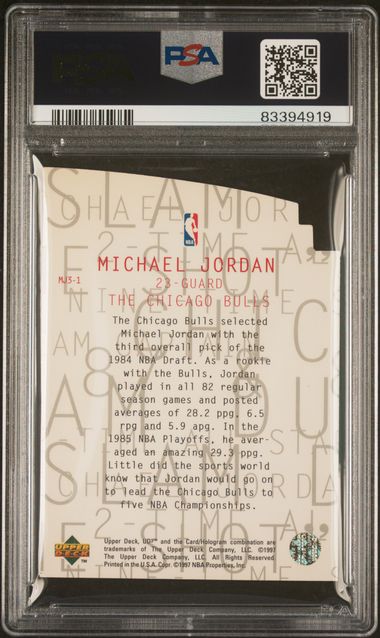 PSA
83394919
NBA
MICHAEL JORDAN
MJ3-1
23-GUARD
THE CHICAGO BULLS
The Chicago Bulls selected
Michael Jordan with the
third overall pick of the
1984 NBA Draft. As a rookie
with the Bulls, Jordan
played in all 82 regular
season games and posted
averages of 28.2 ppg, 6.5
rpg and 5.9 apg. In the
1985 NBA Playoffs, he aver-
aged an amazing 29.3 ppg.
Little did the sports world
know that Jordan would go on
to lead the Chicago Bulls to
five NBA Championships.
UPPER
DECK
Upper Deck, UD³™ and the Card/Hologram combination are
trademarks of The Upper Deck Company, LLC. ©1997
The Upper Deck Company, LLC. All Rights Reserved.
Printed in the U.S.A. Copr. ©1997 NBA Properties, Inc.